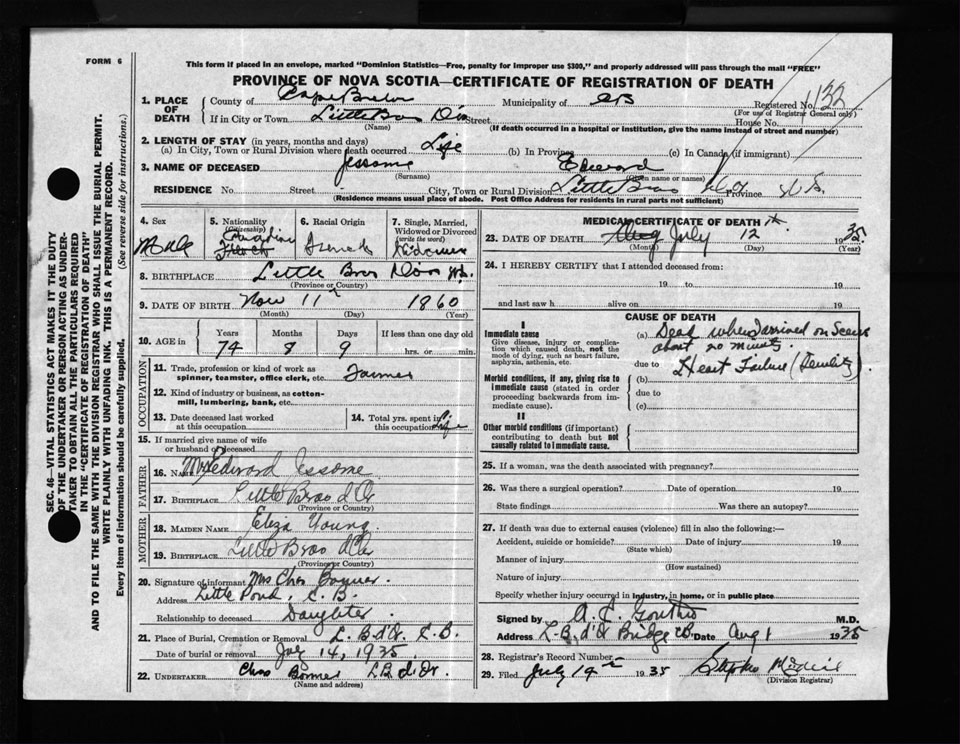 FORM 6
This form if placed in an envelope, marked "Dominion Statistics—Free, penalty for improper use $300," and properly addressed will pass through the mail "FREE"
PROVINCE OF NOVA SCOTIA—CERTIFICATE OF REGISTRATION OF DEATH
SEC. 46—VITAL STATISTICS ACT MAKES IT THE DUTY
OF THE UNDERTAKER OR PERSON ACTING AS UNDER-
TAKER TO OBTAIN ALL THE PARTICULARS REQUIRED
IN THE "CERTIFICATE OF REGISTRATION OF DEATH"
AND TO FILE THE SAME WITH THE DIVISION REGISTRAR WHO SHALL ISSUE THE BURIAL PERMIT.
WRITE PLAINLY WITH UNFADING INK. THIS IS A PERMANENT RECORD.
Every item of information should be carefully supplied. (See reverse side for instructions.)
1. PLACE OF DEATH County of Cape Breton Municipality of CB Registered No. 1132
(For use of Registrar General only)
If in City or Town Little Bras Dor Street House No.
(Name) (If death occurred in a hospital or institution, give the name instead of street and number)
2. LENGTH OF STAY (in years, months and days)
(a) In City, Town or Rural Division where death occurred Life (b) In Province (c) In Canada (if immigrant)
3. NAME OF DECEASED Jessome Edward
(Surname) (Given name or names)
RESIDENCE No. Street City, Town or Rural Division Little Bras d'Or Province N.S.
(Residence means usual place of abode. Post Office Address for residents in rural parts not sufficient)
4. Sex Male
5. Nationality (Citizenship) Canadian French
6. Racial Origin French
7. Single, Married, Widowed or Divorced (write the word) Widower
8. BIRTHPLACE Little Bras Dor N.S.
(Province or Country)
9. DATE OF BIRTH Nov 11 1860
(Month) (Day) (Year)
10. AGE in Years Months Days If less than one day old
74 8 9 hrs. or min.
OCCUPATION
11. Trade, profession or kind of work as spinner, teamster, office clerk, etc. Farmer
12. Kind of industry or business, as cotton-mill, lumbering, bank, etc.
13. Date deceased last worked at this occupation
14. Total yrs. spent in this occupation Life
15. If married give name of wife or husband of deceased
FATHER
16. Name Edward Jessome
17. Birthplace Little Bras d'Or
MOTHER
18. Maiden Name Eliza Young
19. Birthplace Little Bras d'Or
(Province or Country)
20. Signature of informant Mrs Chas Bonner
Address Little Pond, C.B.
Relationship to deceased Daughter
21. Place of Burial, Cremation or Removal L. B. d'Or. C.B.
Date of burial or removal July 14, 1935
22. UNDERTAKER Chas Bonner L B d'Or
(Name and address)
MEDICAL CERTIFICATE OF DEATH
23. DATE OF DEATH Aug July 12th 1935
(Month) (Day) (Year)
24. I HEREBY CERTIFY that I attended deceased from:
19 to 19
and last saw h alive on 19
CAUSE OF DEATH
I
Immediate cause
Give disease, injury or complication which caused death, not the mode of dying, such as heart failure, asphyxia, asthenia, etc.
(a) Dead when I arrived on Scene
about 20 minutes
due to Heart Failure (Senility)
Morbid conditions, if any, giving rise to immediate cause (stated in order proceeding backwards from immediate cause).
(b)
due to
(c)
II
Other morbid conditions (if important) contributing to death but not causally related to immediate cause.
25. If a woman, was the death associated with pregnancy?
26. Was there a surgical operation? Date of operation 19
State findings Was there an autopsy?
27. If death was due to external causes (violence) fill in also the following:—
Accident, suicide or homicide? Date of injury 19
(State which)
Manner of injury
(How sustained)
Nature of injury
Specify whether injury occurred in industry, in home, or in public place
Signed by A. C. M.D.
Address L. B. d'Or Bridge CB Date Aug 1 1935
28. Registrar's Record Number
29. Filed July 19 1935 Stephen
(Division Registrar)